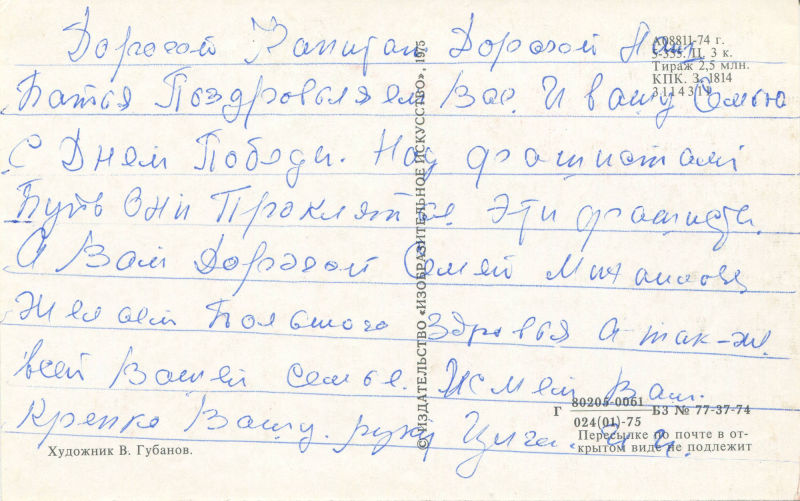 Дорогой Капитан Дорогой Наш
Батья Поздровьляем Вас И вашу Семью
С Днем Победы. Над фашистами
Будь Они Прокляты Эти фашисты.
А Вам Дорогой Семен Михайлович
Желаем Большого Здоровья А так-ж.
всей Вашей семье. Жмем Вам.
Крепко Вашу. руку
А08811-74 г.
5-335. Ц. 3 к.
Тираж 2,5 млн.
КПК. З. 1814
3114319
© ИЗДАТЕЛЬСТВО «ИЗОБРАЗИТЕЛЬНОЕ ИСКУССТВО». 1975
Г 80205-0061 БЗ № 77-37-74
024(01)-75
Пересылке по почте в от-
крытом виде не подлежит
Художник В. Губанов.